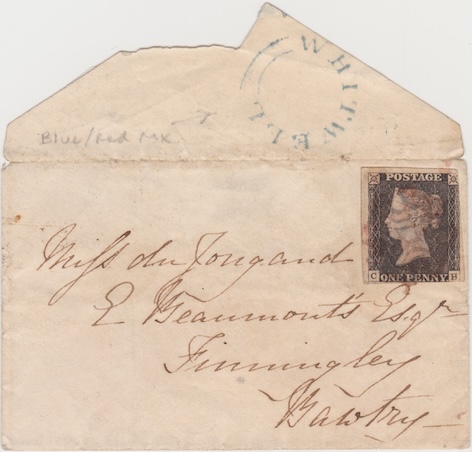 WHITWELL
Blue/red MX
POSTAGE
C ONE PENNY H
Miss du Jongand
E Beaumont's Esqr
Finningley
Bawtry